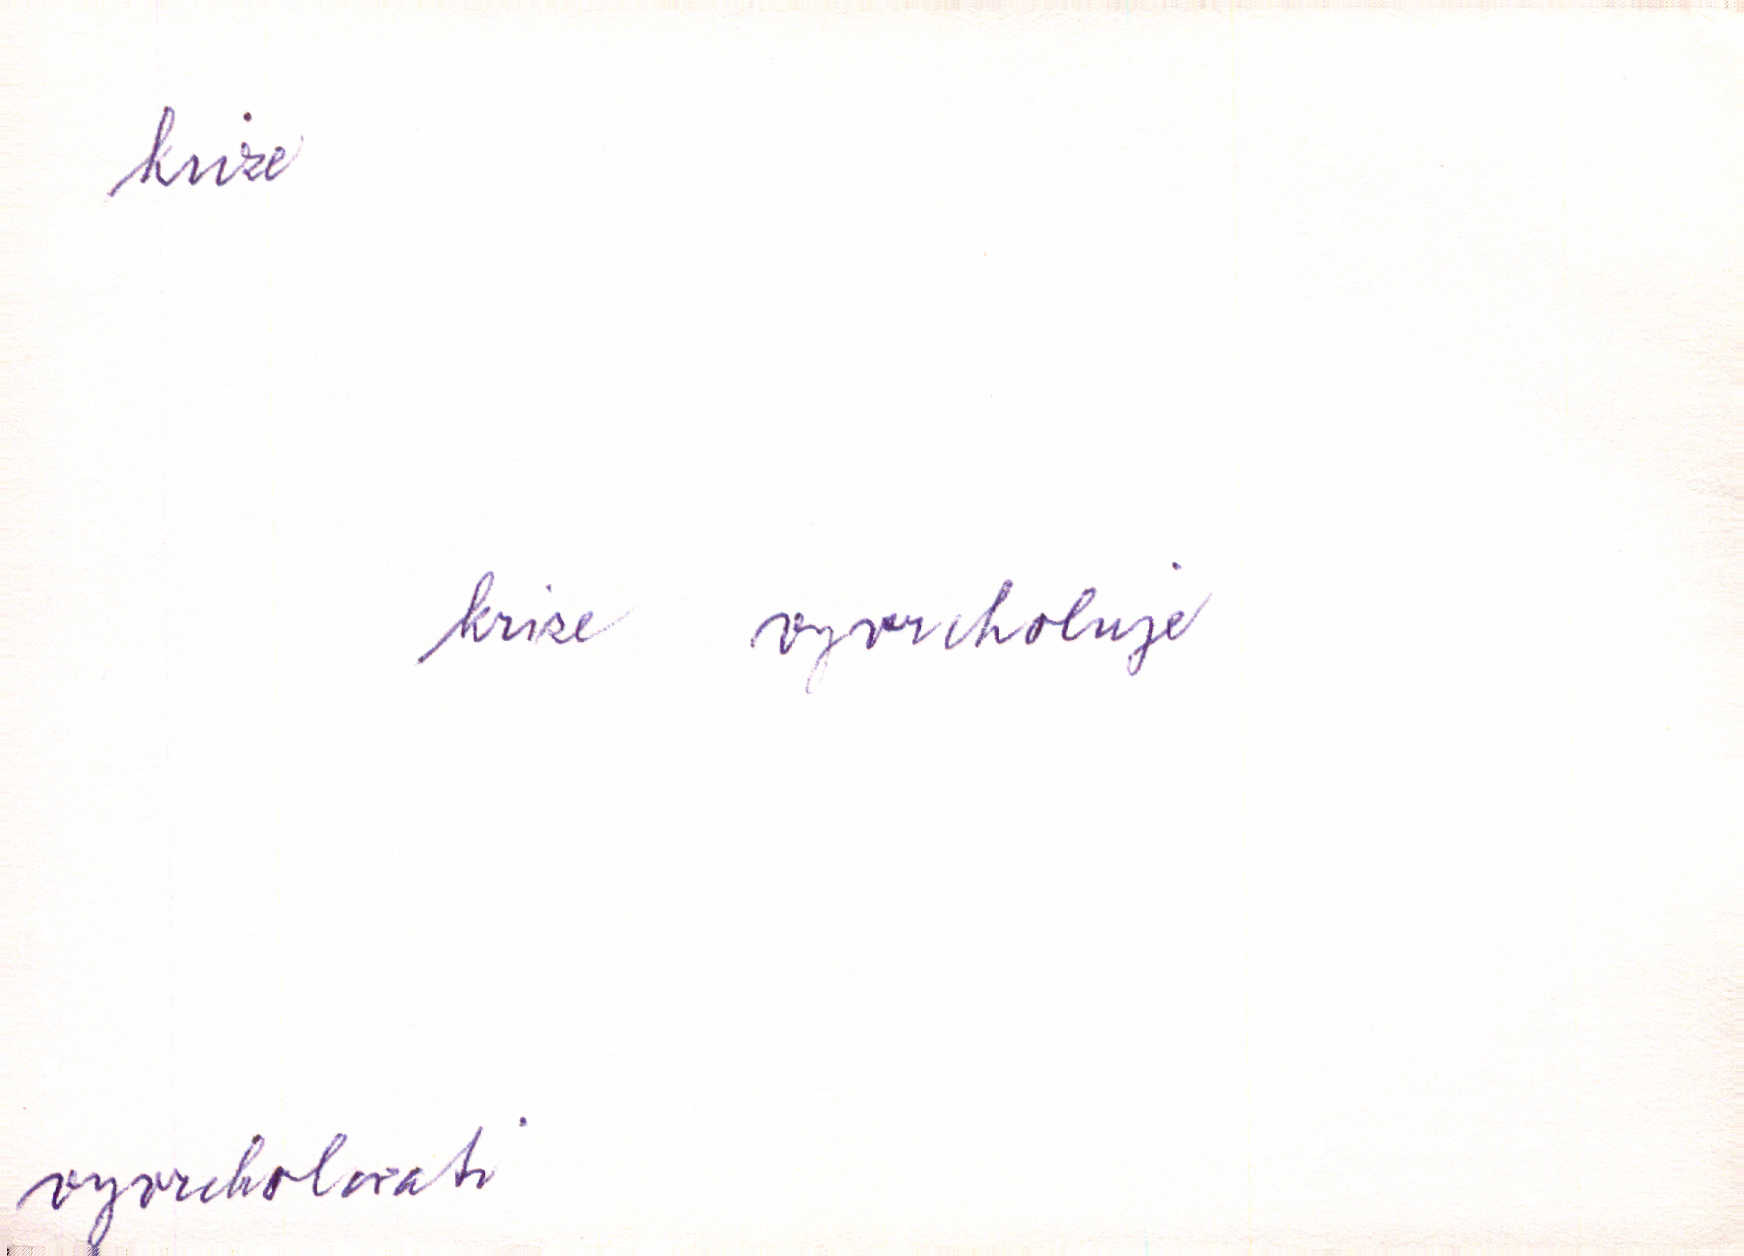 krize
krize vyvrcholuje
vyvrcholovati